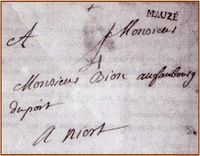 MAUZÉ
A Monsieur
Monsieur Dion au faubourg
du port
A niort